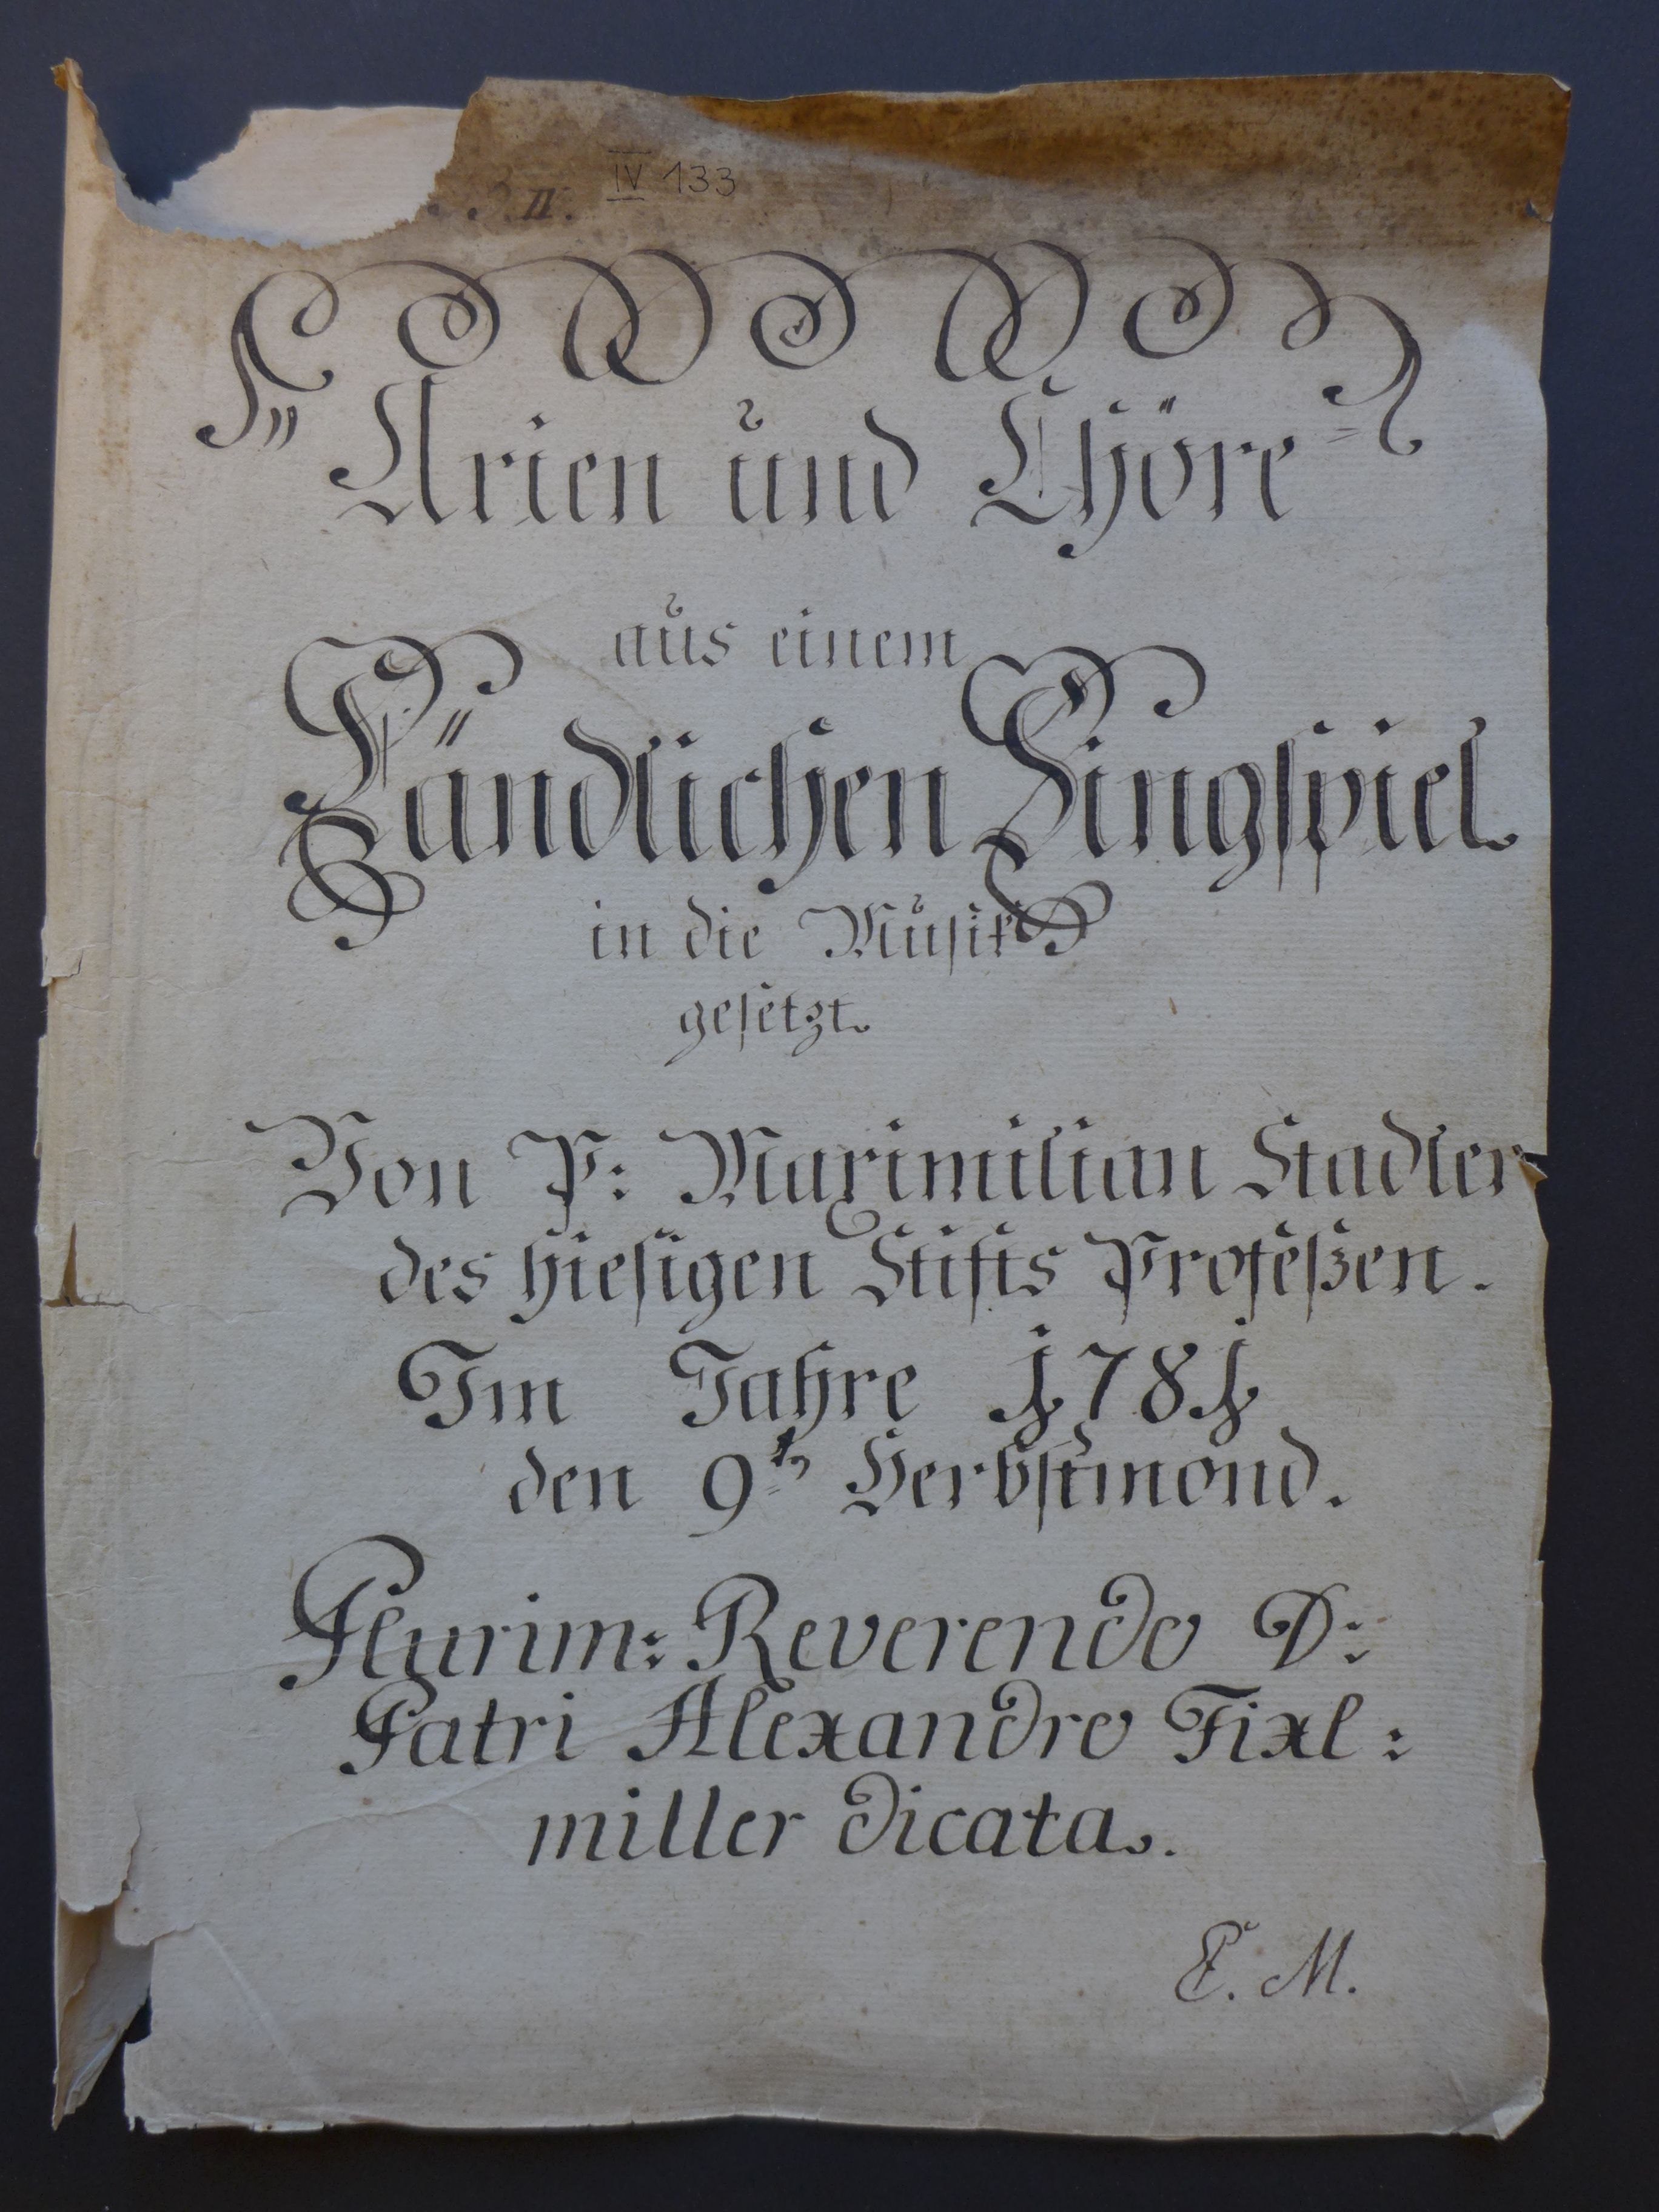 IV 133
II.
Arien und Chöre
aus einem
Ländlichen Singspiel.
in die Musik
gesetzt.
Von P: Maximilian Stadler
des hiesigen Stifts Profeßen.
Im Jahre 1781
den 9tn Herbstmond.
Plurim: Reverendo D:
Patri Alexandro Fixl:
miller dicata.
E. M.